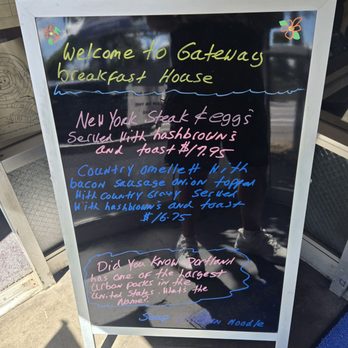 Welcome to Gateway
breakfast House
New York Steak & eggs
Served With hashbrown's
and toast $17.95
Country omellett With
bacon Sausage onion topped
With Country Gravy Served
With hashbrown's and toast
$16.75
Did You Know Portland
has one of the Largest
Urban parks in the
United States. Whats the
Name?
Soup
Noodle